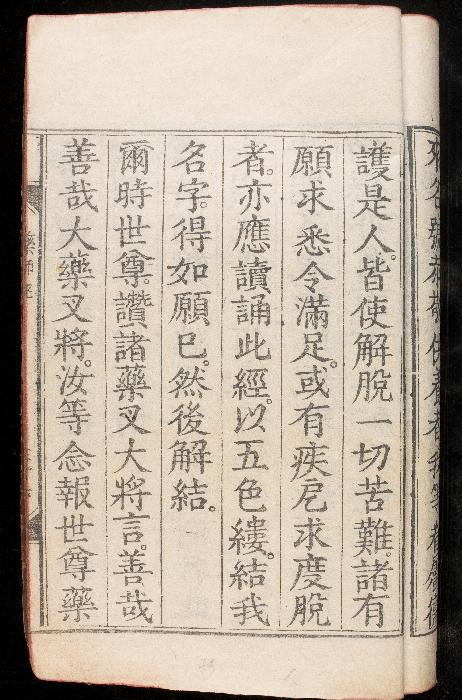 來名號恭敬供養者我等眷屬衛
護是人。皆使解脫一切苦難。諸有
願求悉令滿足。或有疾戹求度脫
者。亦應讀誦此經。以五色縷。結我
名字。得如願已。然後解結。
爾時世尊。讚諸藥叉大將言。善哉
善哉大藥叉將。汝等念報世尊藥
藥師經